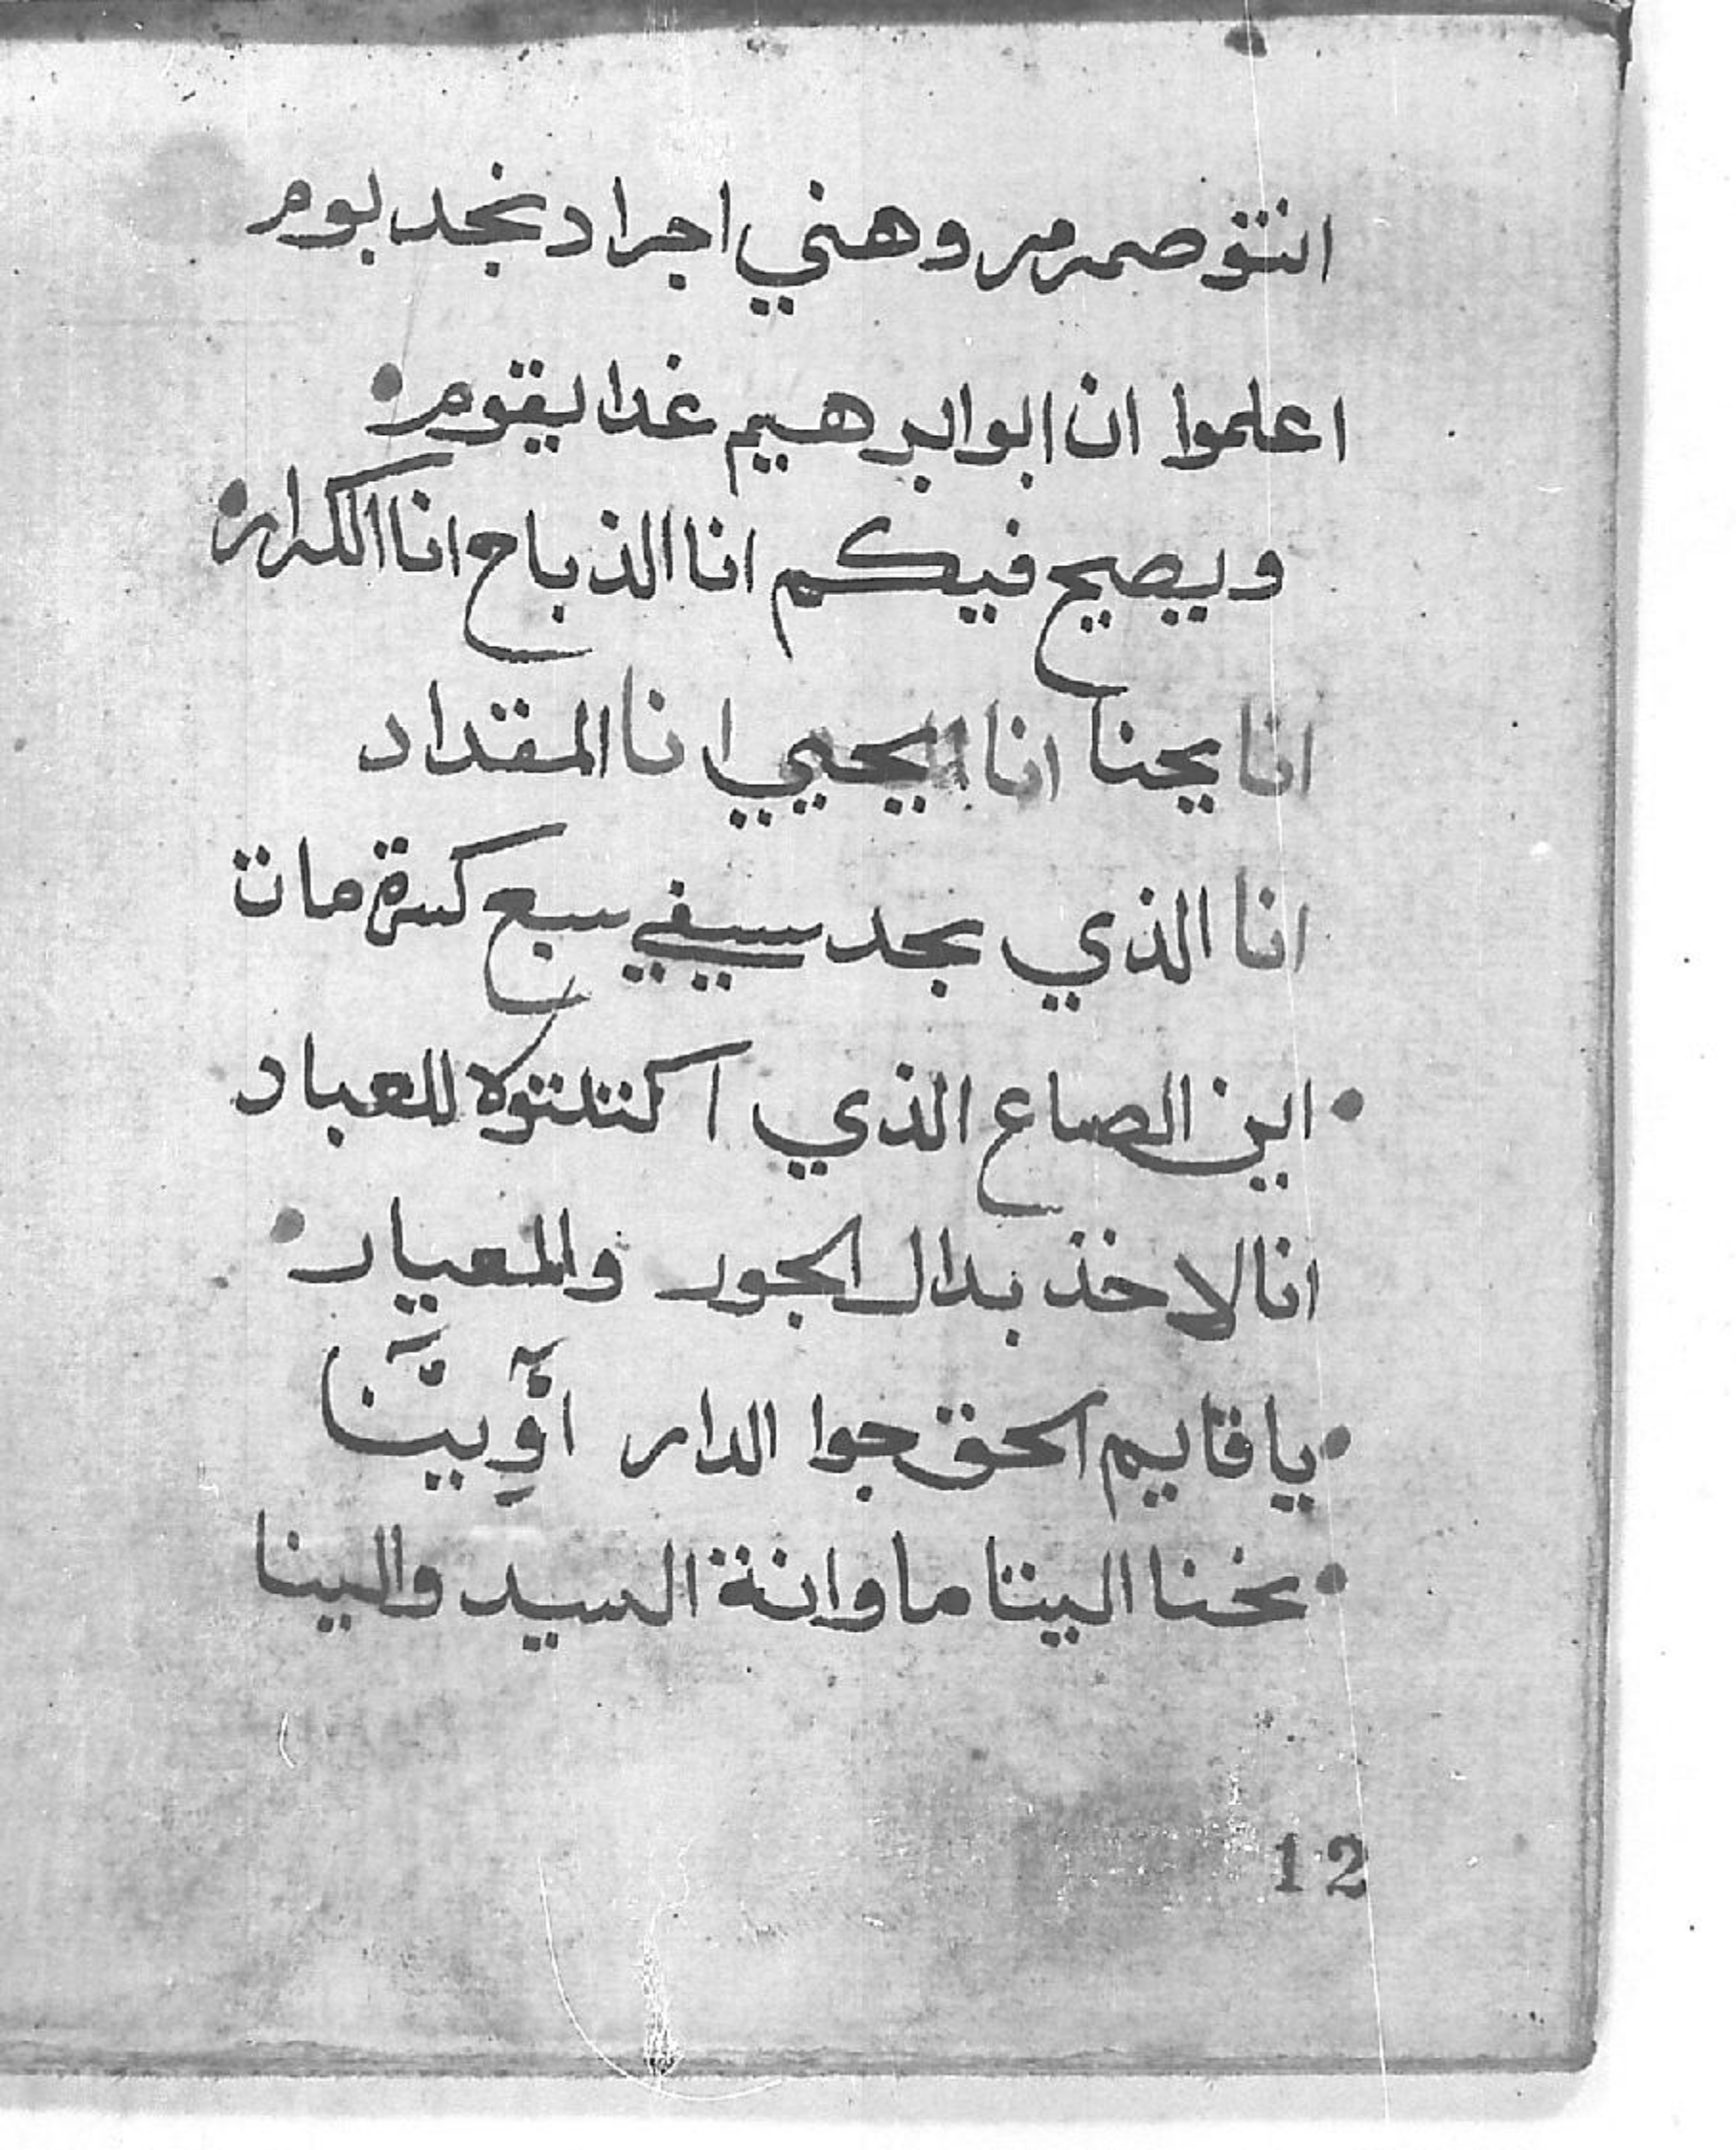 انتو صمرمر وهني اجراد نجد بوم
اعلموا ان ابو ابرهيم غدا يقوم
ويصيح فيكم انا الذباح انا الكرار
انا يحنا انا اليحيي انا المقداد
انا الذي بحد سيفي سبع كرة مات
اين الصاع الذي اكتلتوه للعباد
انا لاخذ بدال الجور والمعيار
يا قايم الحق جوا الدار اَوِ بيَّنا
نحنا اليتاما وانة السيد والينا
12